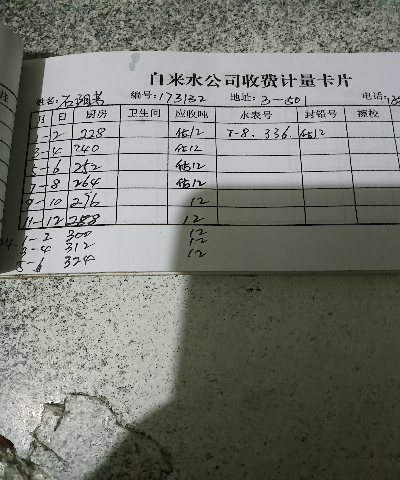 自来水公司收费计量卡片
姓名: 石 编号: 173132 地址: 3-501 电话:
月 日 厨房 卫生间 应收吨 水表号 封铅号 裱校
1-2 228 估12 7-8. 336 估12
3-4 240 估12
5-6 252 估12
7-8 264 估12
9-10 276 12
11-12 288 12
1-2 300 12
3-4 312 12
5-6 324 12